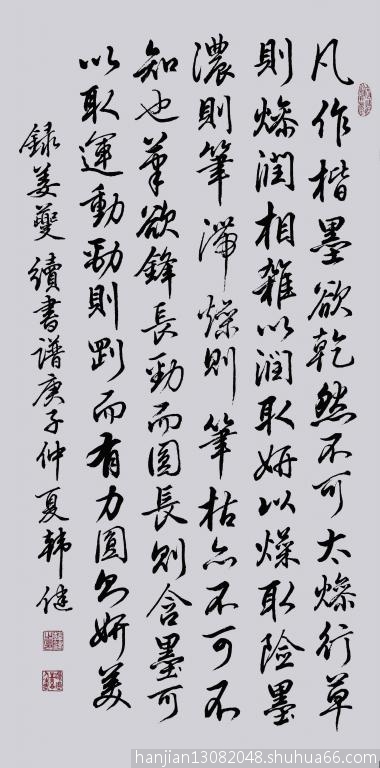 凡作楷墨欲乾然不可太燥行草
則燥潤相雜以潤取妍以燥取险墨
濃則筆滯燥則筆枯亦不可不
知也筆欲鋒長勁而圓長則含墨可
以取運動勁則剛而有力圓則妍美
録姜夔續書譜庚子仲夏韩健
hanjian13082048.shuhua66.com